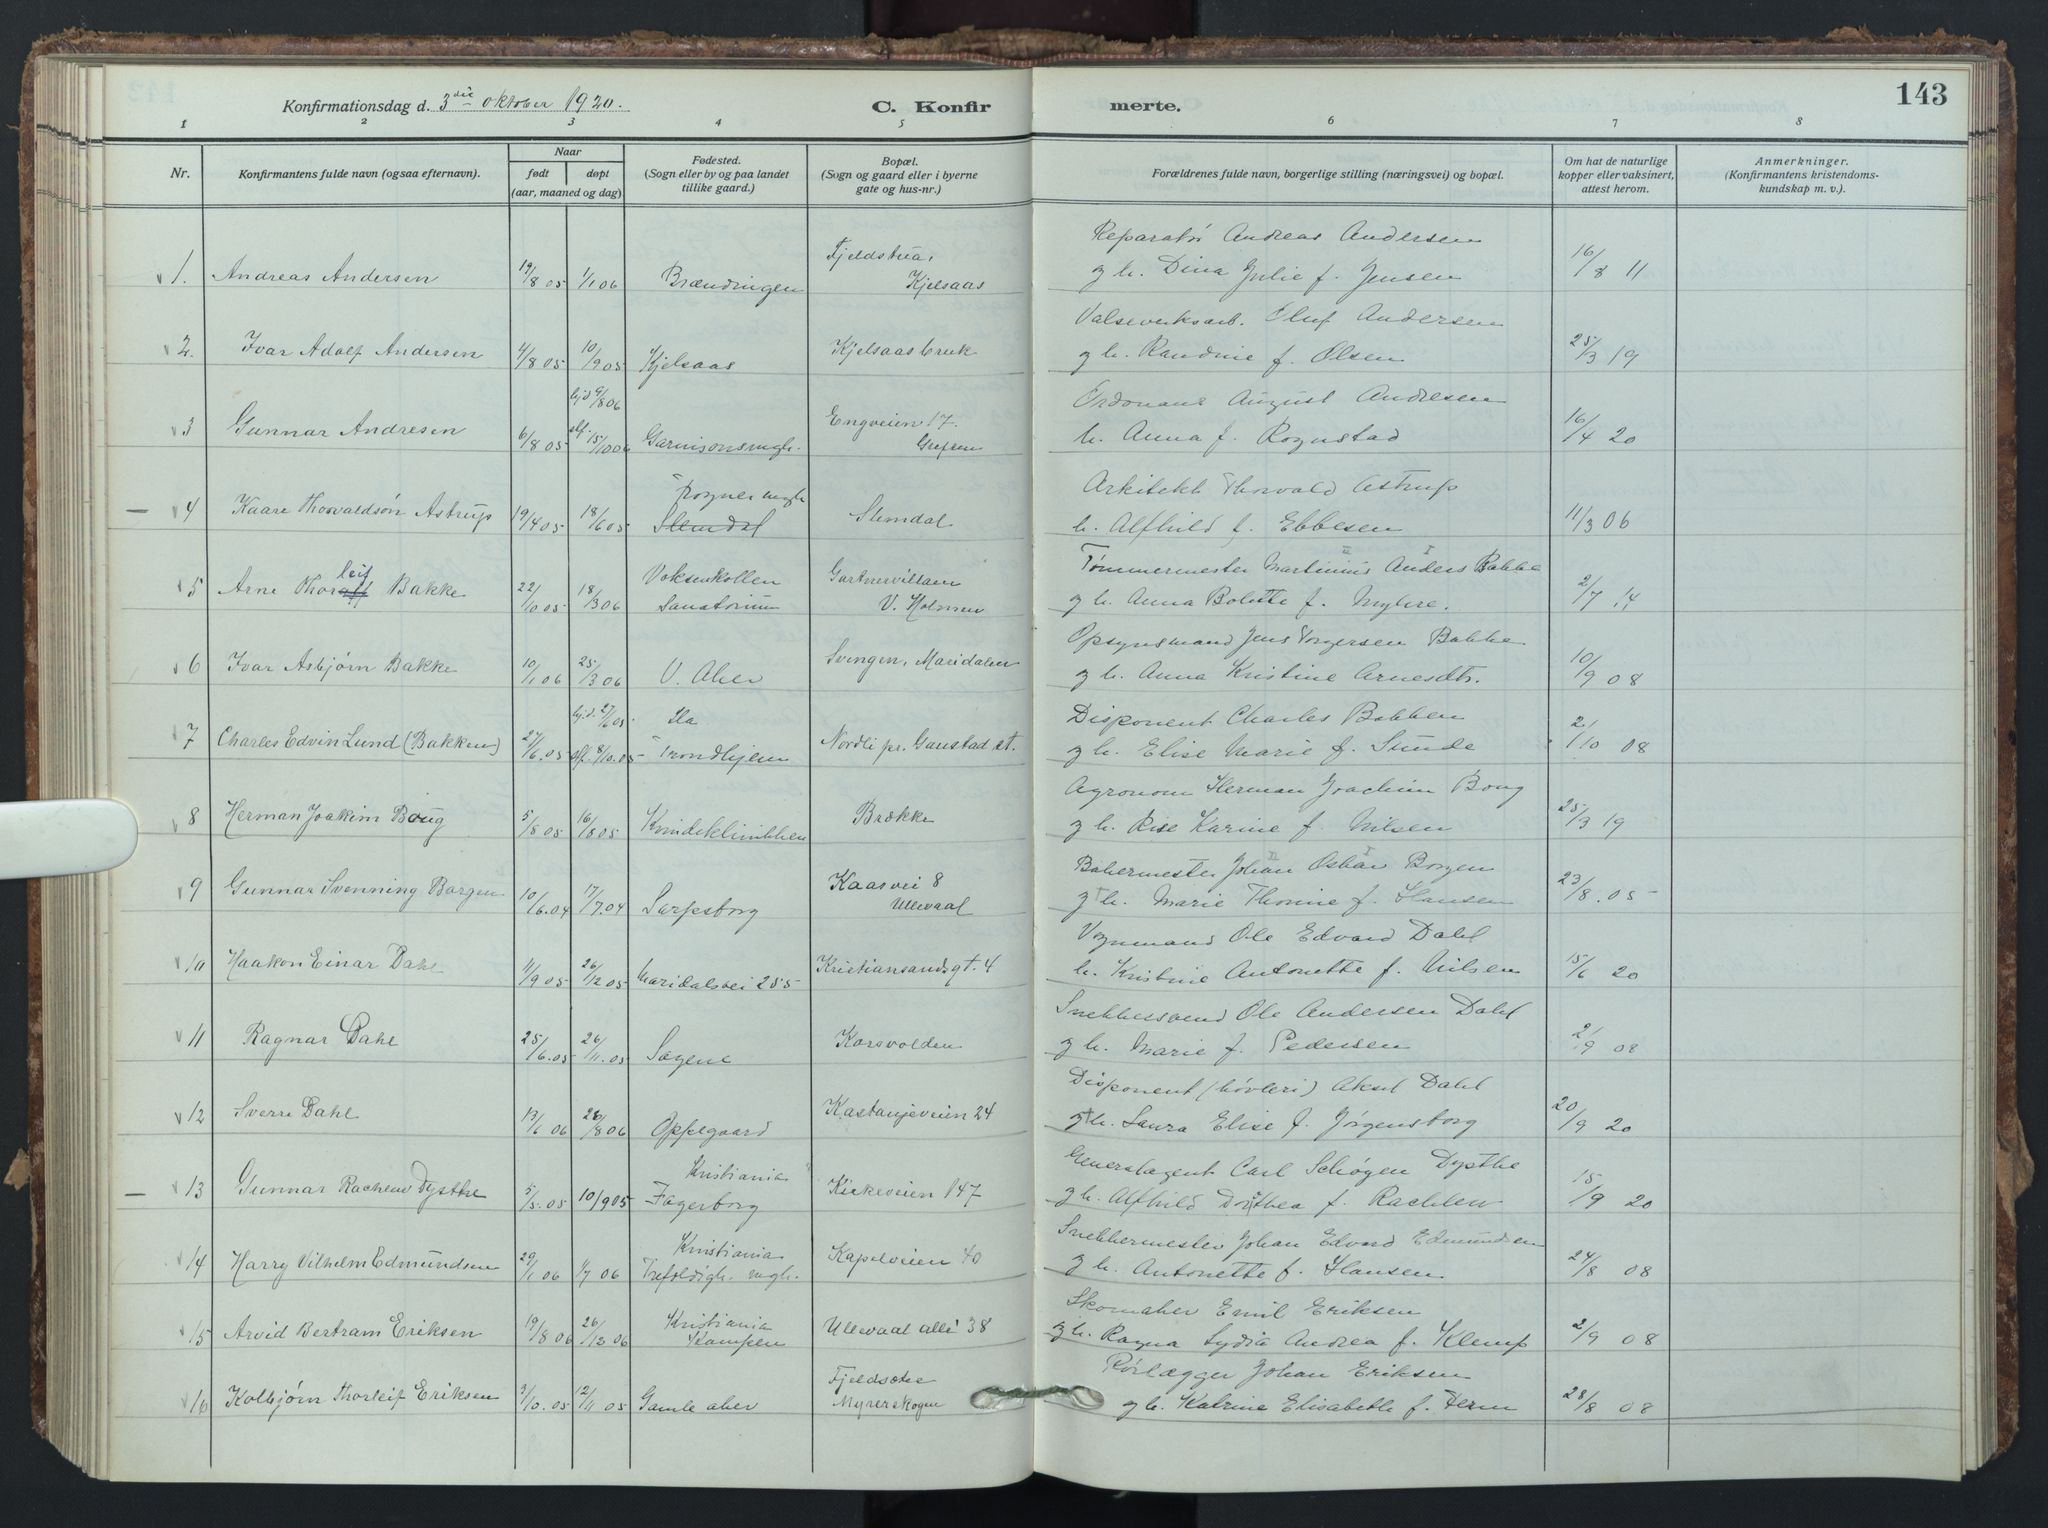 143
Konfirmationsdag d. 3die oktober 1920.
C. Konfirmerte.
1 2 3 4 5 6 7 8
Nr.
Konfirmantens fulde navn (ogsaa efternavn).
Naar
født døpt
(aar, maaned og dag)
Fødested.
(Sogn eller by og paa landet
tillike gaard.)
Bopæl.
(Sogn og gaard eller i byerne
gate og hus-nr.)
Forældrenes fulde navn, borgerlige stilling (næringsvei) og bopæl.
Om hat de naturlige
kopper eller vaksinert,
attest herom.
Anmerkninger.
(Konfirmantens kristendoms-
kundskap m. v.).
Fjeldstua, Reparatør Andreas Andersen
1. Andreas Andersen 19/8 05 1/1 06 Brændingen Kjelsaas g h. Dina Julie f. Jensen 16/8 11
Valseverksarb. Oluf Andersen
2. Ivar Adolf Andersen 4/8 05 10/9 05 Kjelsaas Kjelsaas bruk g h. Randine f. Olsen 25/3 19
hjd 9/8 06 Engveien 17. Ordonans August Andresen
3 Gunnar Andresen 6/8 05 slf. 15/10 06 Garnisonsmgh. Grefsen h. Anna f. Rognstad 16/4 20
Frogner mgh Arkitekt Thorvald Astrup
4 Kaare Thorvaldsøn Astrup 19/4 05 18/6 05 Slemdal Slemdal h. Alfhild f. Ebbesen 11/3 06
leif Voksenkollen Gartnervillaen Tømmermester Martinius II Anders I Bakke
5 Arne Thoralf Bakke 22/10 05 18/3 06 Sanatorium V. Holmen g h. Anna Bolette f. Myhre. 2/7 14
Svingen, Maridalen Opsynsmand Jens Torgersen Bakke
6 Ivar Asbjørn Bakke 10/1 06 25/3 06 V. Aker g h. Anna Kristine Arnesdtr. 10/9 08
hjd. 27/6 05 Ila Disponent Charles Bakken
7 Charles Edvin Lund (Bakken) 27/6. 05 slf. 8/10. 05 Trondhjem Nordli pr. Gaustad st. g h. Elise Marie f. Sunde 2/10 08
Agronom Herman Joachim Boug
8 Herman Joakim Boug 5/8 05 16/8 05 Kvindeklinikken Brække g h. Rise Karine f. Nilsen 25/3 19
Kaasvei 8 Bakermester Johan II Oskar I Borgen
9 Gunnar Svenning Borgen 10/6. 04 17/7. 04 Sarpsborg Ullevaal g † h. Marie Thonine f. Hansen 23/8. 05
Vognmand Ole Edvard Dahl
10 Haakon Einar Dahl 11/9 05 26/12 05 Maridalsvei 255 Kristiansandsgt. 4 h. Kristine Antonette f. Nilsen 15/6 20
Snekkersvend Ole Andersen Dahl
11 Ragnar Dahl 25/6. 05 26/11. 05 Sagene Korsvolden g h. Marie f. Pedersen 2/9 08
Disponent (høvleri) Aksel Dahl
12 Sverre Dahl 13/6 06 26/8 06 Oppegaard Kastanjeveien 24 g † h. Laura Elise f. Jørgensborg 20/9 20
Kristiania Generalagent Carl Schøgen Dysthe
13 Gunnar Rachlew Dysthe 5/5. 05 10/9 05 Fagerborg Kirkeveien 147 g h. Alfhild Dorthea f. Rachlew 15/9 20
Kristiania Snekkermester Johan Edvard Edmundsen
14 Harry Vilhelm Edmundsen 29/1 06 1/7 06 Trefoldigh. mgh. Kapelveien 40 g h. Antonette f. Hansen 24/8 08
Kristiania Skomaker Emil Eriksen
15 Arvid Bertram Eriksen 19/8 06 26/12 06 Kampen Ullevaal alle 38 g h. Ragna Lydia Andrea f. Klemp 2/9 08
Rørlægger Johan Eriksen
16 Kolbjørn Thorleif Eriksen 3/10. 05 12/11 05 Gamle aker Myrerskogen g h. Katrine Elisabeth f. 28/8 08